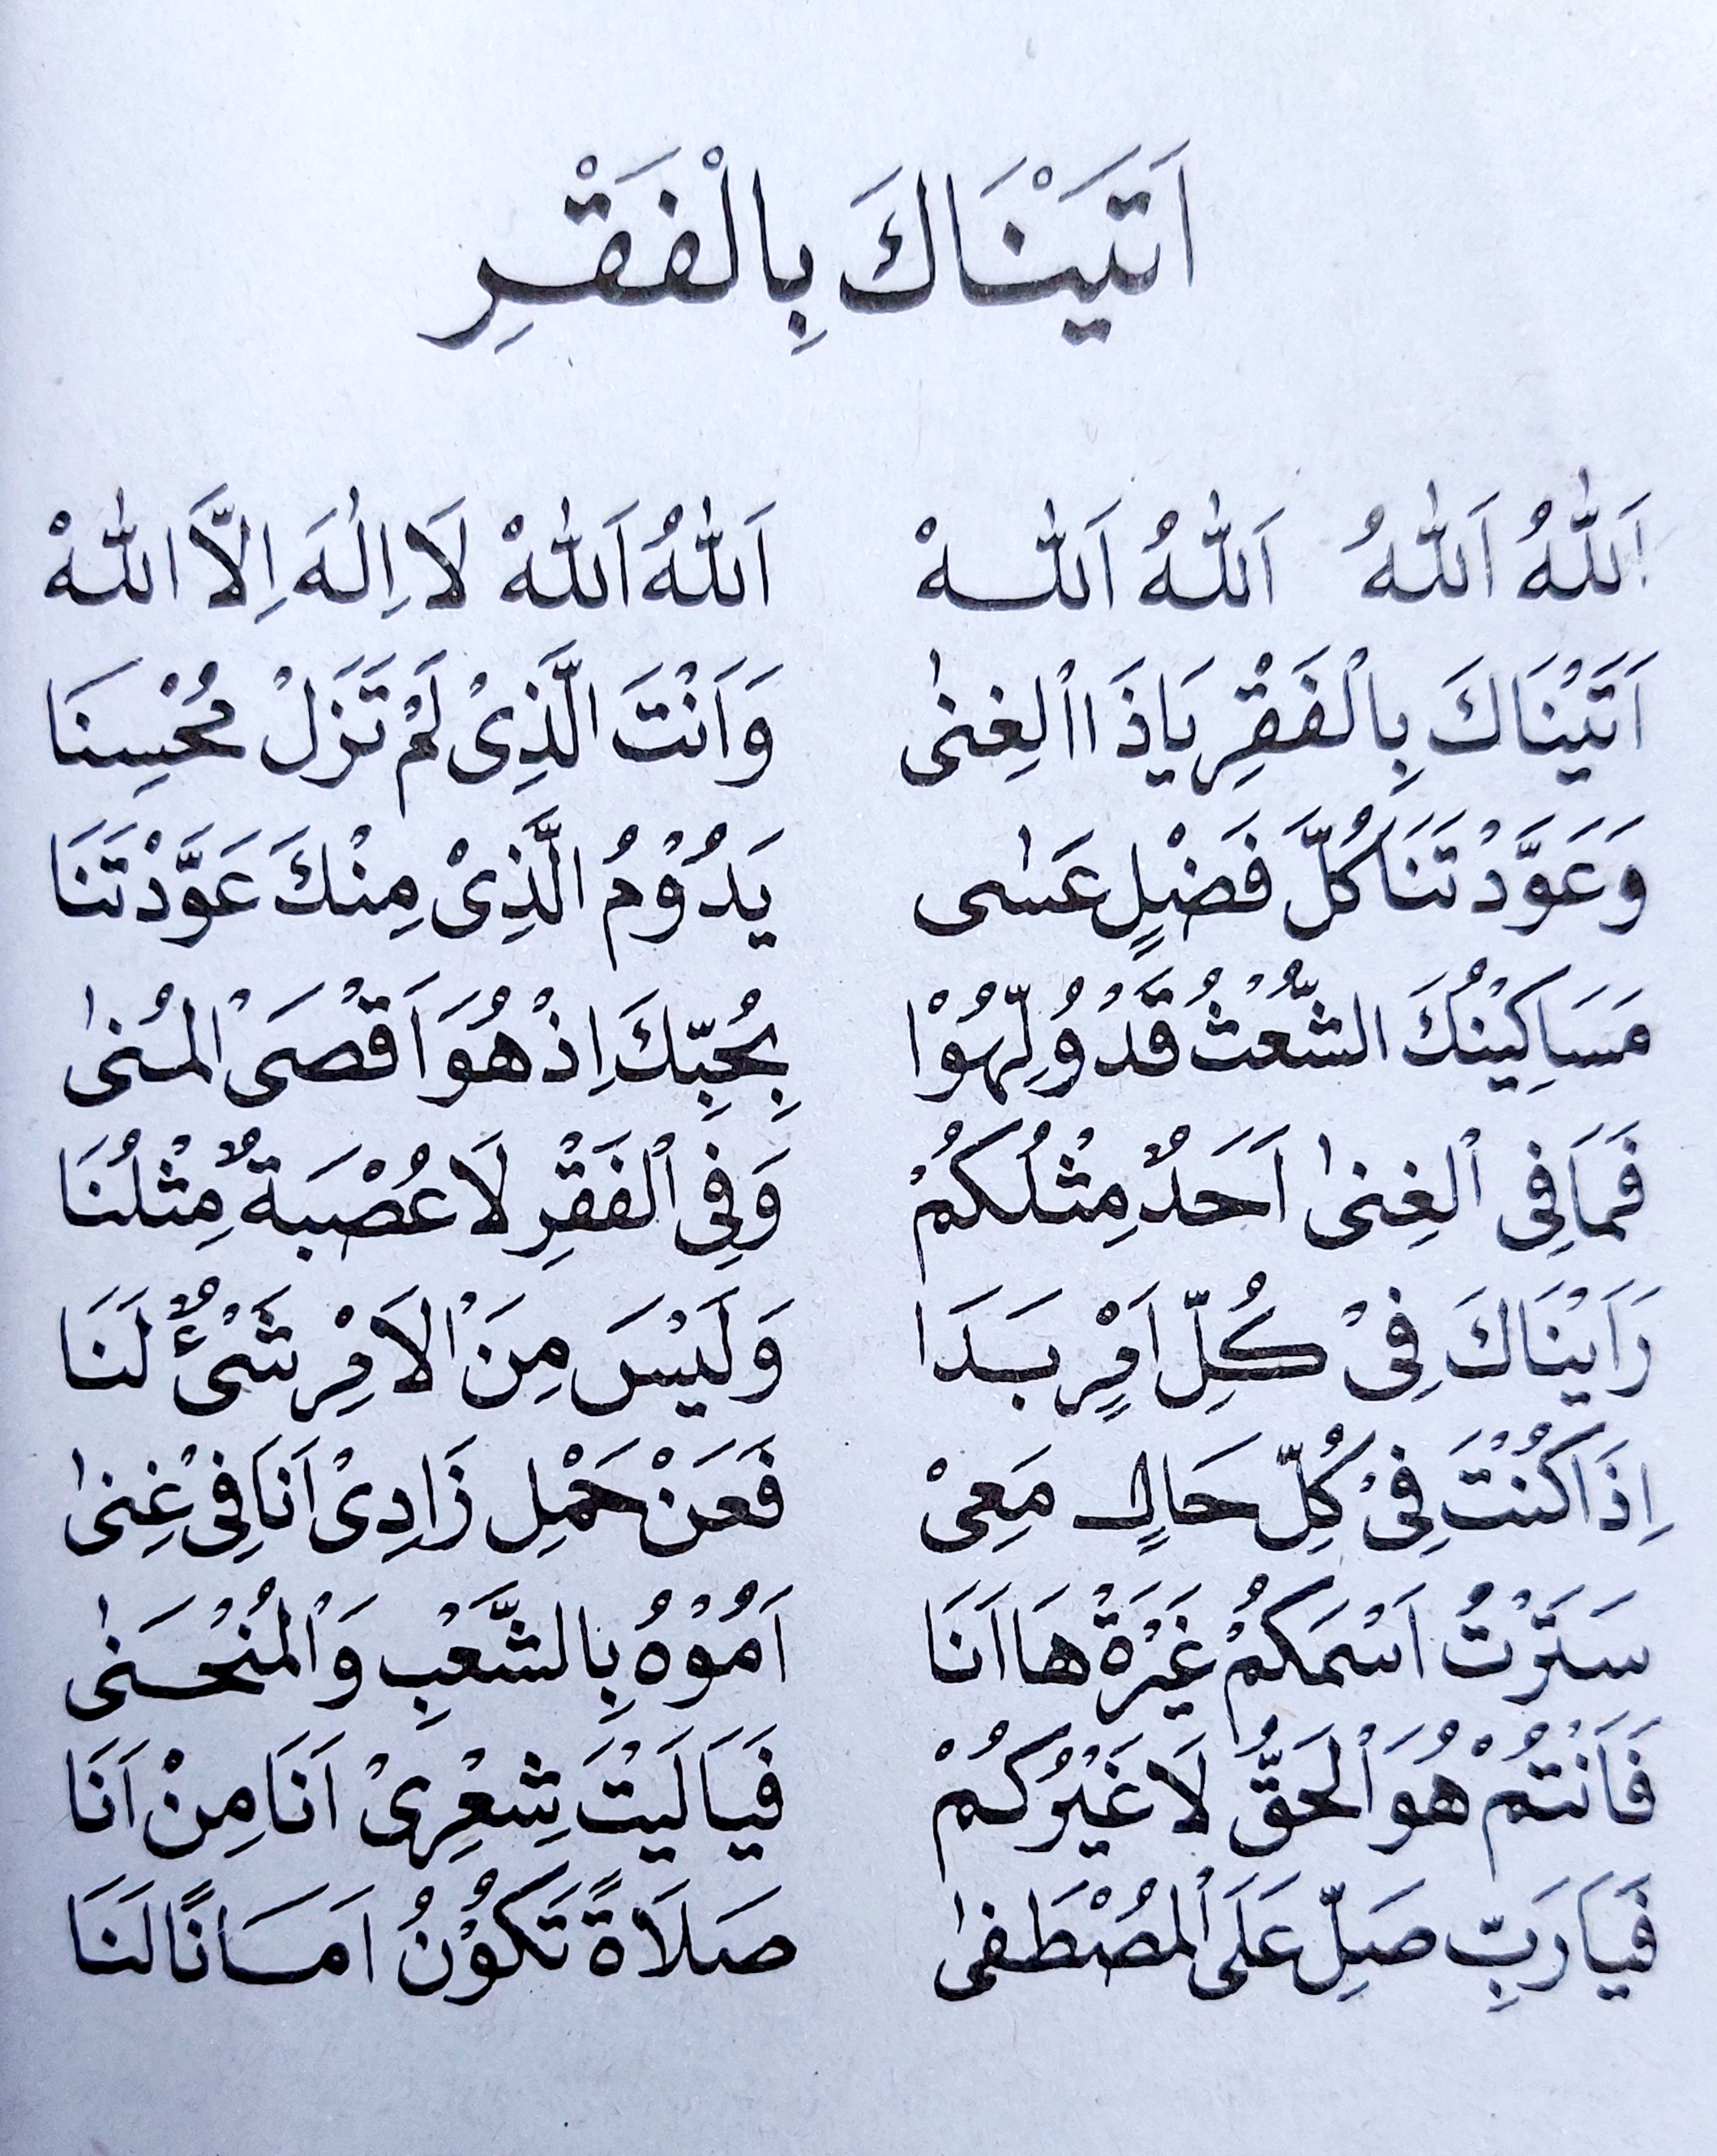 اَتَيْنَاكَ بِالْفَقْرِ
اَللّٰهُ اَللّٰهُ اَللّٰهُ اَللّٰهْ اَللّٰهُ اَللّٰهْ لَا اِلٰهَ اِلَّا اللّٰهْ
اَتَيْنَاكَ بِالْفَقْرِ يَاذَا الْغِنٰى وَاَنْتَ الَّذِىْ لَمْ تَزَلْ مُحْسِنَا
وَعَوَّدْتَنَا كُلَّ فَضْلٍ عَسٰى يَدُوْمُ الَّذِىْ مِنْكَ عَوَّدْتَنَا
مَسَاكِيْنُكَ الشُّعْثُ قَدْ وُلِّهُوْا بِحُبِّكَ اِذْ هُوَ اَقْصَى الْمُنٰى
فَمَا فِى الْغِنٰى اَحَدٌ مِثْلُكُمْ وَفِى الْفَقْرِ لَا عُصْبَةٌ مِثْلُنَا
رَاَيْنَاكَ فِىْ كُلِّ اَمْرٍ بَدَا وَلَيْسَ مِنَ الْاَمْرِ شَىْءٌ لَنَا
اِذَا كُنْتَ فِىْ كُلِّ حَالٍ مَعِىْ فَعَنْ حَمْلِ زَادِىْ اَنَا فِىْ غِنٰى
سَتَرْتُ اسْمَكُمْ غَيْرَةً هَا اَنَا اَمُوْهُ بِالشَّعْبِ وَالْمُنْحَنٰى
فَاَنْتُمْ هُوَ الْحَقُّ لَا غَيْرُكُمْ فَيَالَيْتَ شِعْرِىْ اَنَا مِنْ اَنَا
فَيَارَبِّ صَلِّ عَلَى الْمُصْطَفٰى صَلَاةً تَكُوْنُ اَمَانًا لَنَا